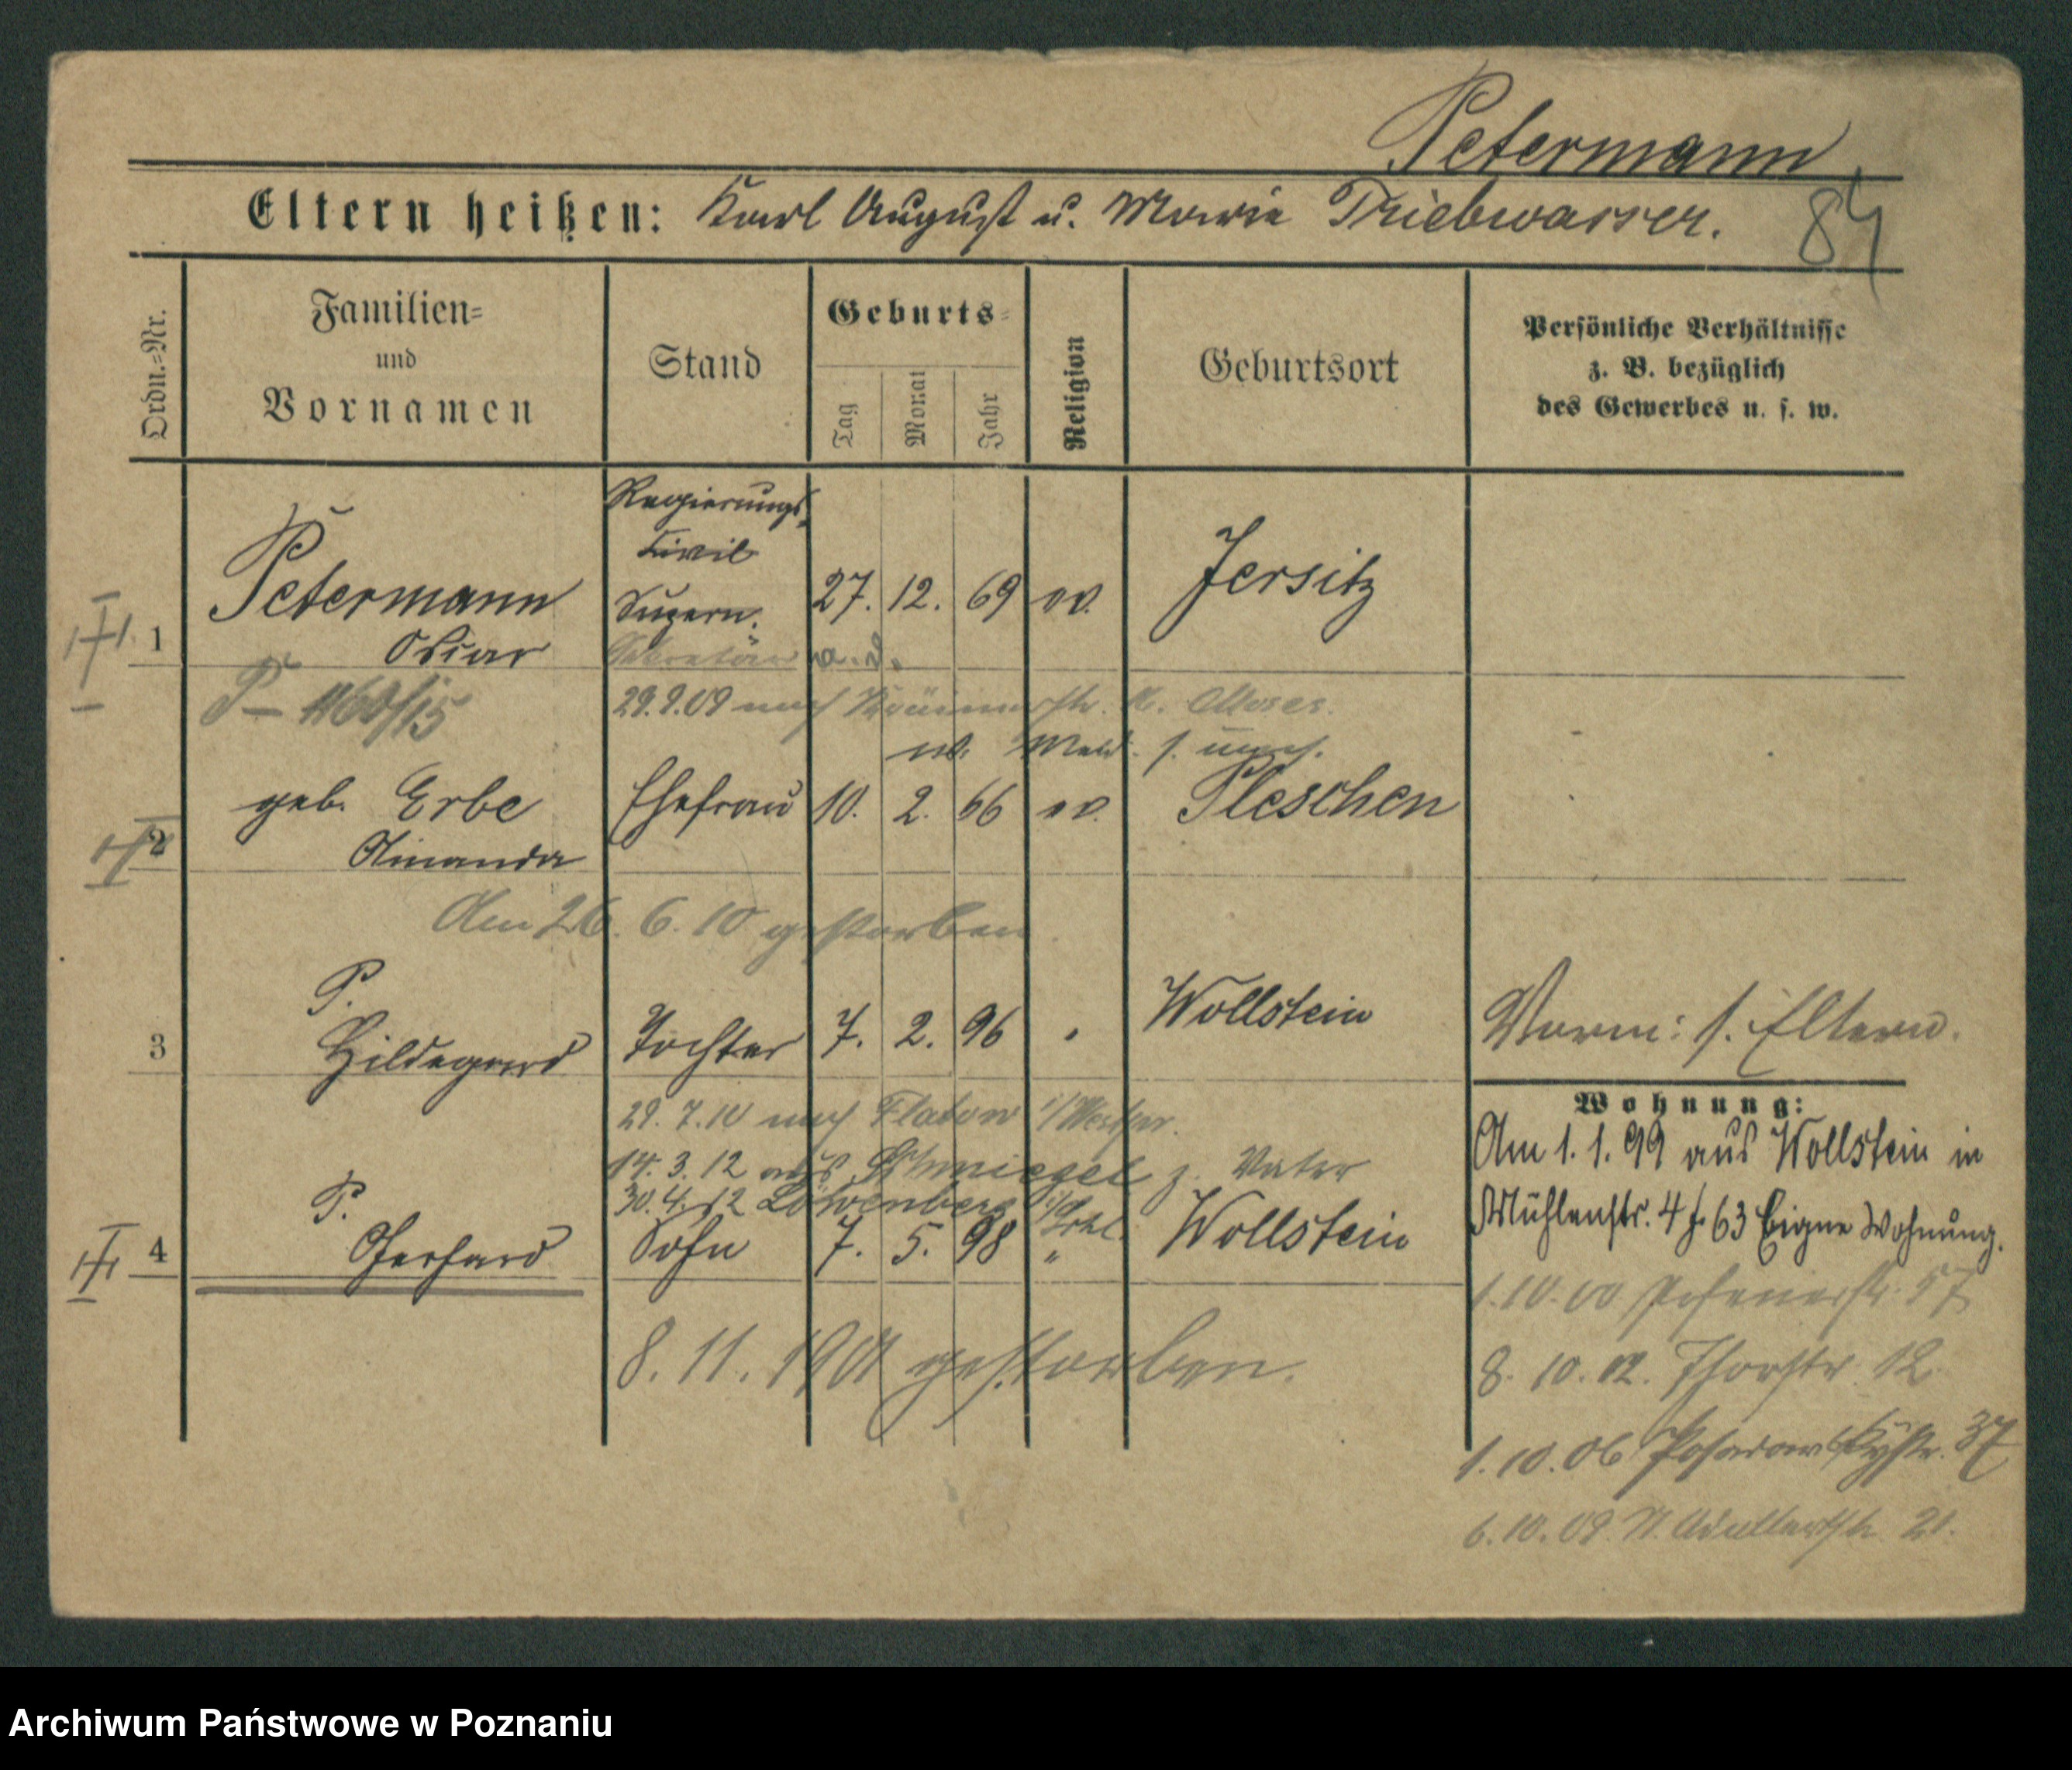 Petermann
Eltern heißen: Karl August u. Marie Triebwasser.
84
Ordn.=Nr.
Familien=
und
Vornamen
Stand
Geburts=
Tag
Monat
Jahr
Religion
Geburtsort
Persönliche Verhältnisse
z. B. bezüglich
des Gewerbes u. s. w.
Regierungs
Civil
Supern.
1 Petermann 27. 12. 69 ev. Jersitz
Oskar
Sekretär a. D.
29.9.09 nach
geb. Erbe Ehefrau 10. 2. 66 ev. Pleschen
2 Amanda
Am 26. 6. 10 gestorben
P.
3 Hildegard Tochter 7. 2. 96 Wollstein
Vorm: s. Eltern.
29. 7. 10 nach Flatow i/Westpr.
Wohnung:
14. 3. 12 aus Schmiegel z. Vater
30. 4. 12 Löwenberg i/Schl.
P.
4 Gerhard Sohn 7. 5. 98 " Wollstein
8. 11. 1901 gestorben.
Am 1. 1. 99 aus Wollstein in
Mühlenstr. 4 63 Eigne Wohnung.
1. 10. 00 Posenerstr. 57
8. 10. 02. Thorstr. 12.
1. 10. 06 Posadowskystr. 37
6. 10. 09. 21.